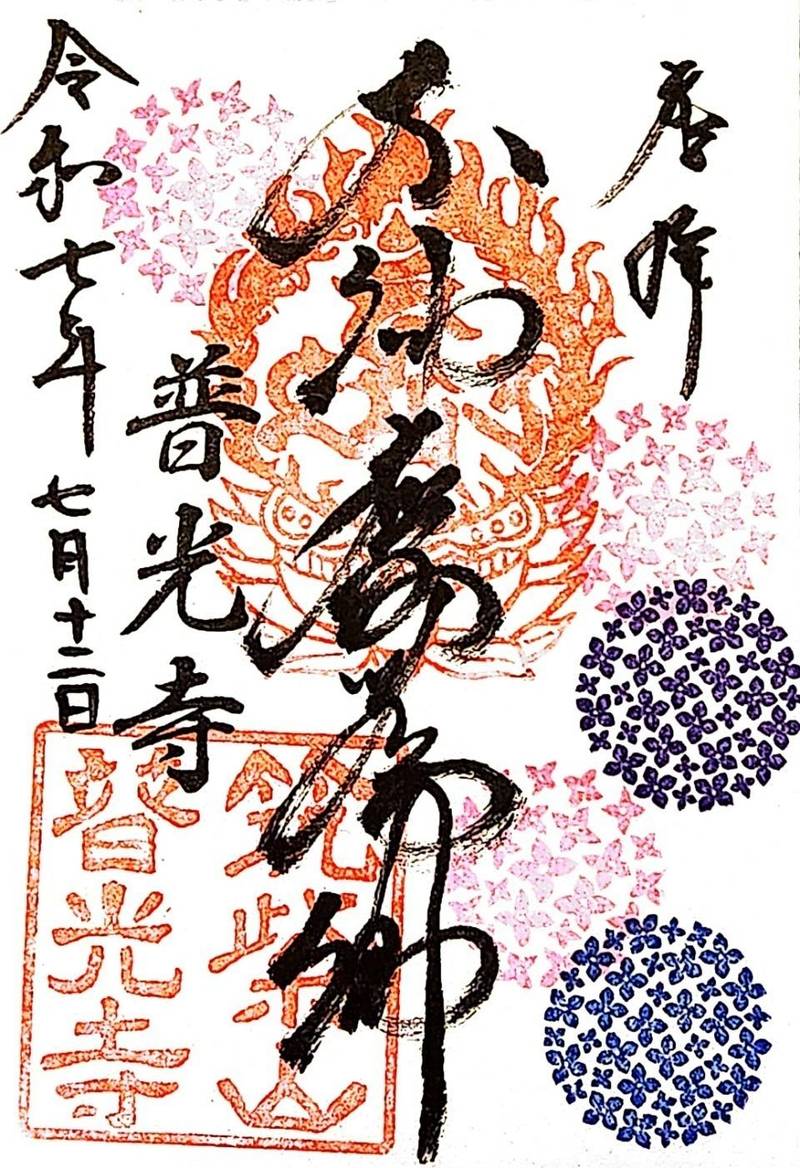 奉拝
不動磨崖佛
普光寺
令和七年七月十二日
筑紫山
普光寺